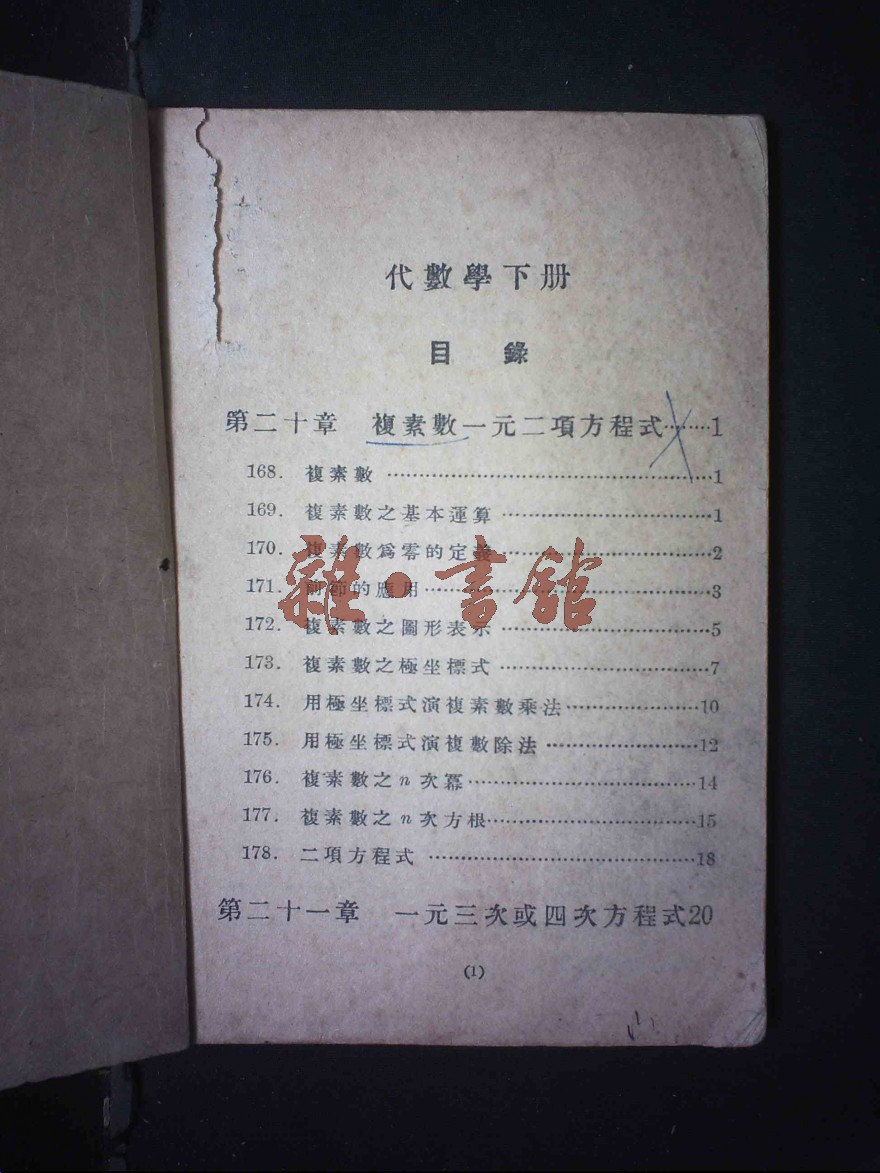 代數學下册
目 錄
第二十章 複素數一元二項方程式……1
168. 複素數 ……1
169. 複素數之基本運算 ……1
170. 複素數爲零的定義 ……2
171. 前節的應用 ……3
172. 複素數之圖形表示 ……5
173. 複素數之極坐標式 ……7
174. 用極坐標式演複素數乘法 ……10
175. 用極坐標式演複數除法 ……12
176. 複素數之n次冪 ……14
177. 複素數之n次方根 ……15
178. 二項方程式 ……18
第二十一章 一元三次或四次方程式20
(1)
雜·書館